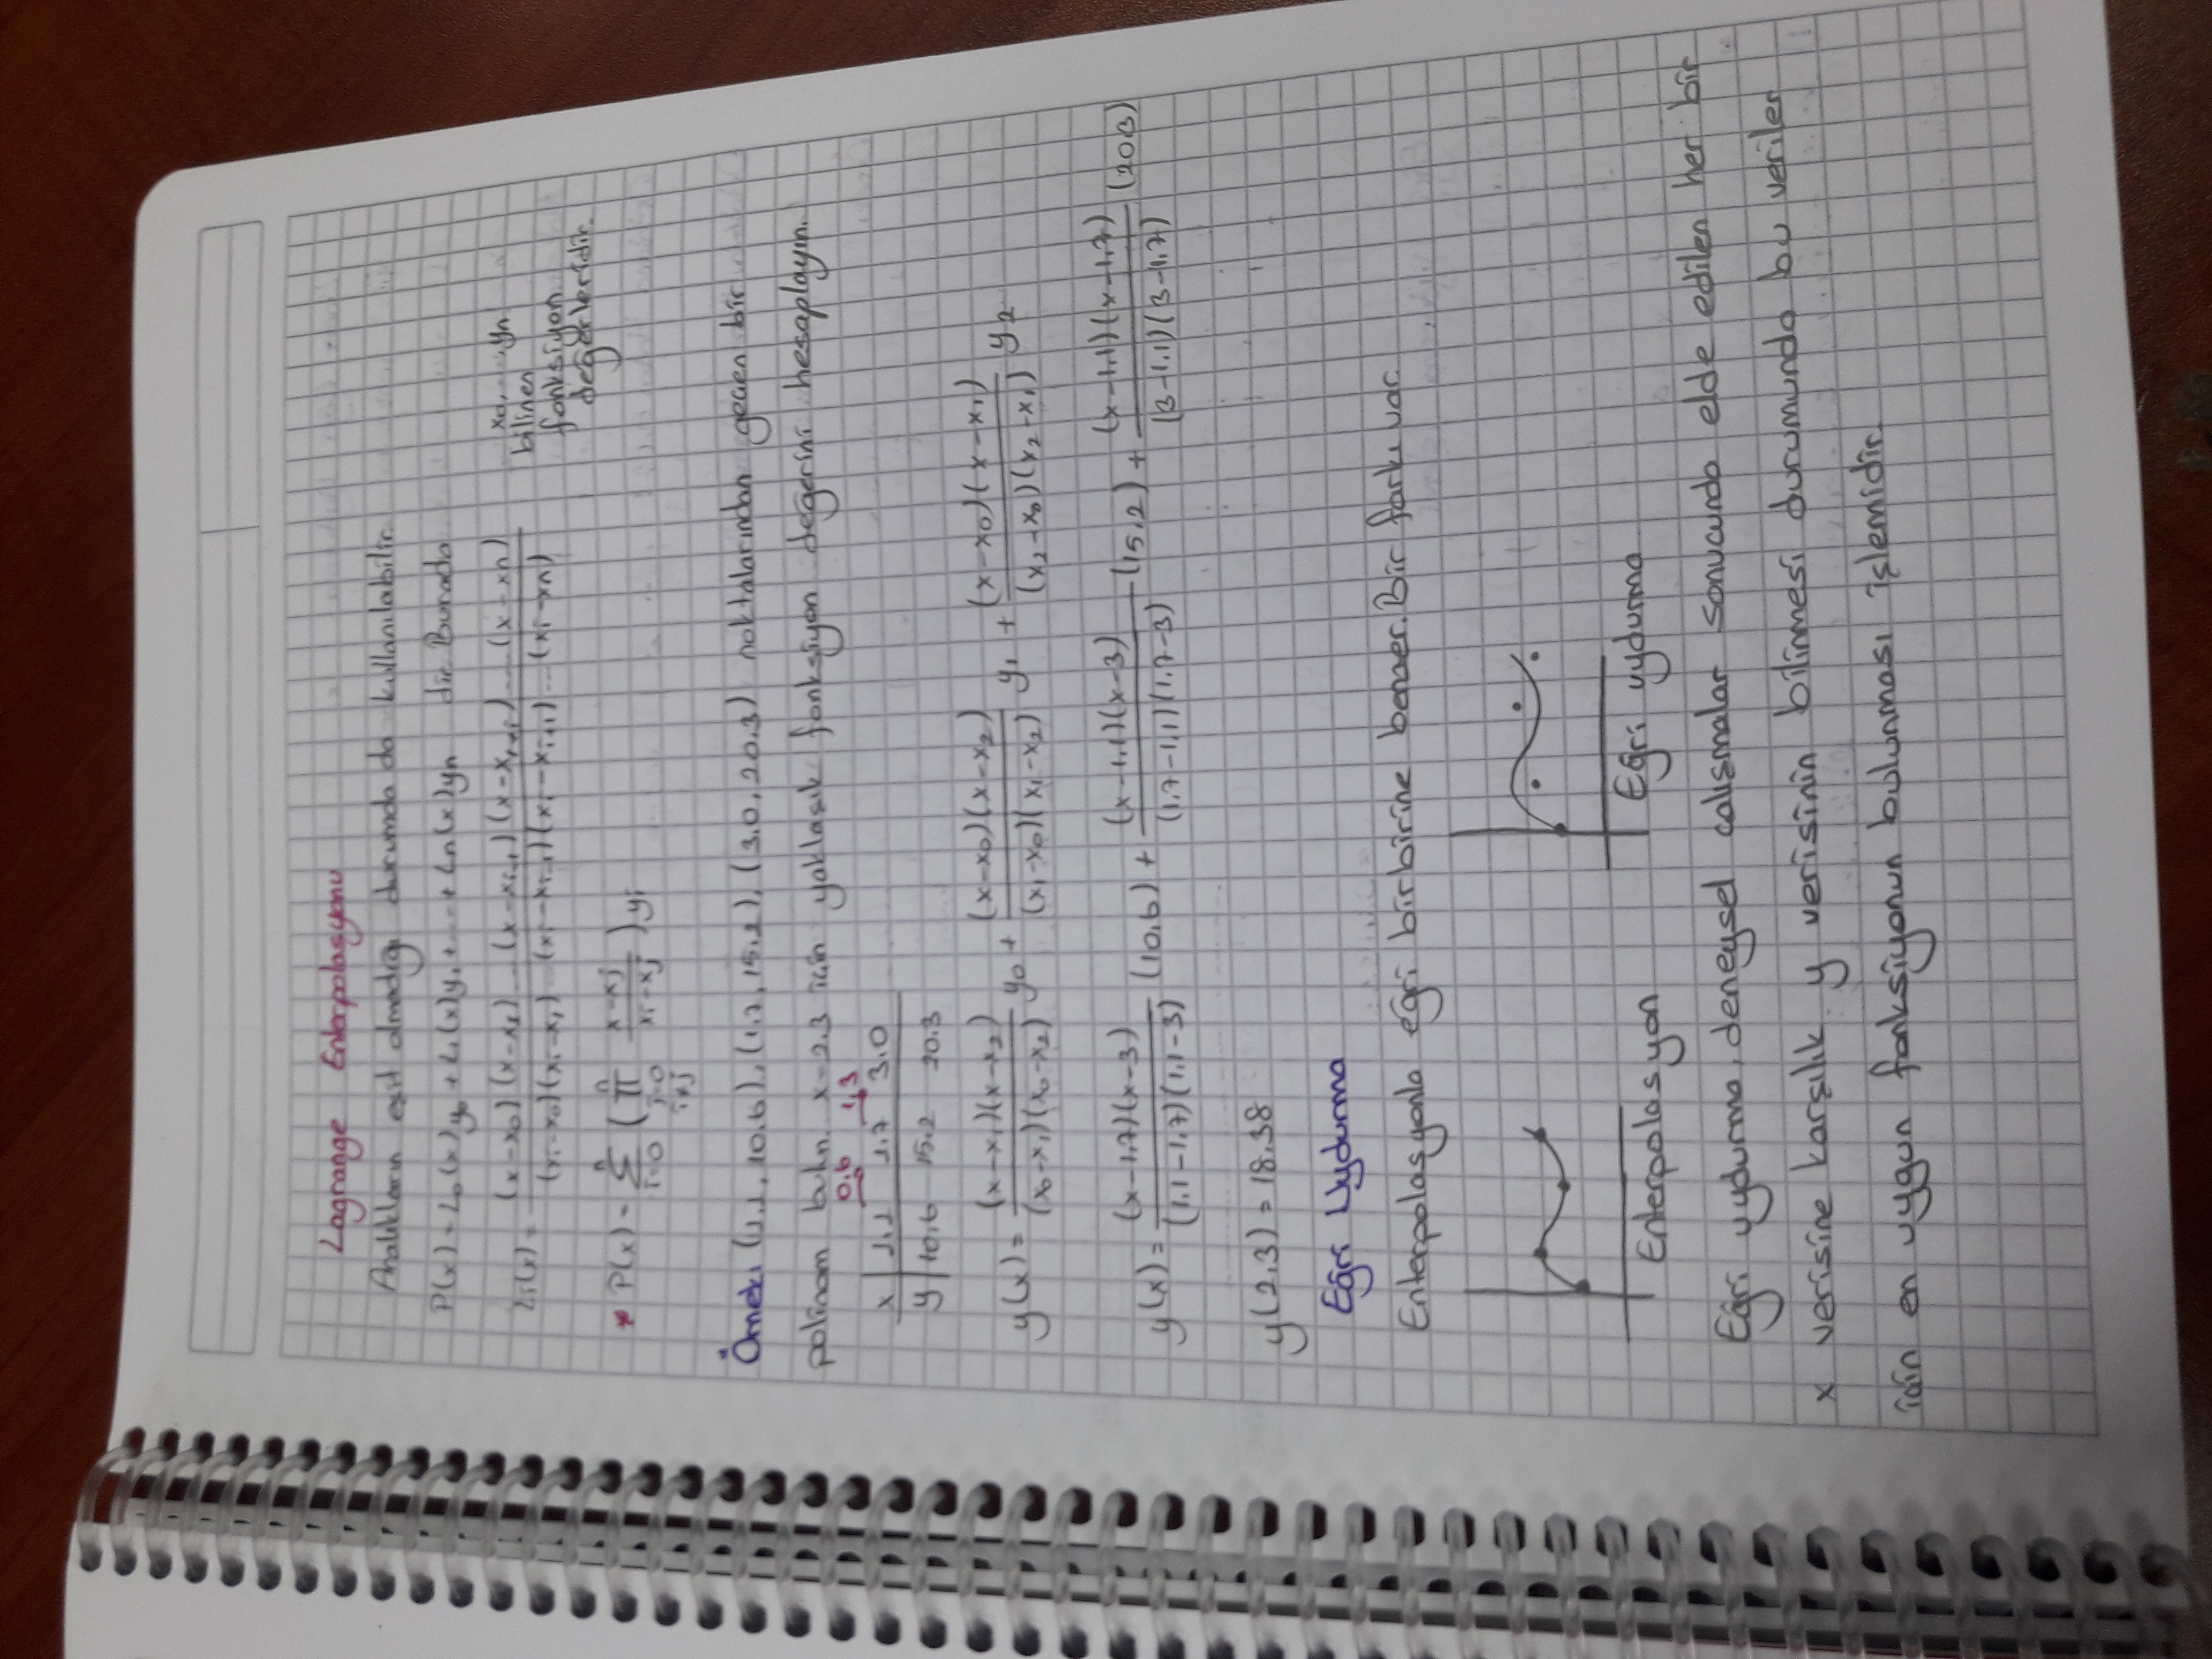 Lagrange Enterpolasyonu
Aralıkların eşit olmadığı durumda da kullanılabilir.
P(x) = L₀(x)y₀ + L₁(x)y₁ + ... + Ln(x)yn dir. Burada
Li(x) = (x-x₀)(x-x₁)...(x-xi-1)(x-xi+1)...(x-xn) / (xi-x₀)(xi-x₁)...(xi-xi-1)(xi-xi+1)...(xi-xn)
x₀, ... yn
bilinen
fonksiyon
değerleridir.
* P(x) = Σ (i=0, n) ( Π (j=0, i≠j, n) (x-xj)/(xi-xj) ) yi
Örnek: (1.1, 10.6), (1.7, 15.2), (3.0, 20.3) noktalarından geçen bir
polinom bulun. x=2.3 için yaklaşık fonksiyon değerini hesaplayın.
0.6 1,3
x | 1.1 1.7 3.0
y | 10.6 15.2 20.3
y(x) = (x-x₁)(x-x₂) / (x₀-x₁)(x₀-x₂) y₀ + (x-x₀)(x-x₂) / (x₁-x₀)(x₁-x₂) y₁ + (x-x₀)(x-x₁) / (x₂-x₀)(x₂-x₁) y₂
y(x) = (x-1,7)(x-3) / (1,1-1,7)(1,1-3) (10,6) + (x-1,1)(x-3) / (1,7-1,1)(1,7-3) (15,2) + (x-1,1)(x-1,7) / (3-1,1)(3-1,7) (20,3)
y(2,3) = 18.38
Eğri Uydurma
Enterpolasyonla eğri birbirine benzer. Bir farkı var.
Enterpolasyon
Eğri uydurma
Eğri uydurma, deneysel çalışmalar sonucunda elde edilen her bir
x verisine karşılık y verisinin bilinmesi durumunda bu veriler
için en uygun fonksiyonun bulunması işlemidir.